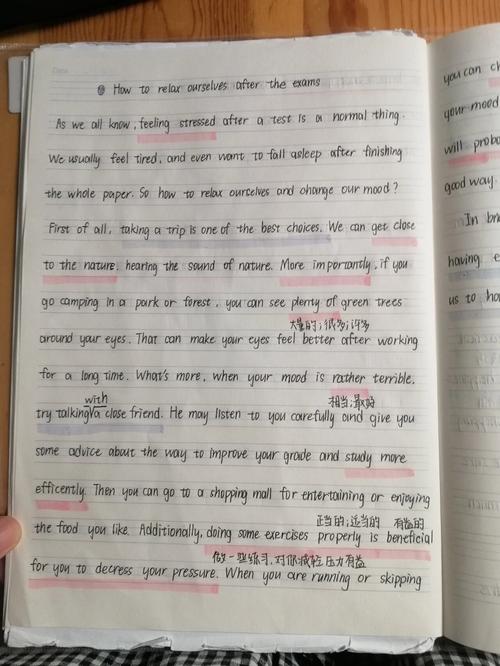 How to relax ourselves after the exams
As we all know, feeling stressed after a test is a normal thing.
We usually feel tired, and even want to fall asleep after finishing
the whole paper. So how to relax ourselves and change our mood?
First of all, taking a trip is one of the best choices. We can get close
to the nature, hearing the sound of nature. More importantly, if you
go camping in a park or forest, you can see plenty of green trees
大量的;很多;许多
around your eyes. That can make your eyes feel better after working
for a long time. What's more, when your mood is rather terrible,
with
相当;最好
try talking a close friend. He may listen to you carefully and give you
some advice about the way to improve your grade and study more
efficently. Then you can go to a shopping mall for entertaining or enjoying
正当的;适当的 有益的
the food you like. Additionally, doing some exercises properly is beneficial
做一些练习,对你减轻压力有益
for you to decress your pressure. When you are running or skipping
you can
your mood
will
good way.
In
having
us to